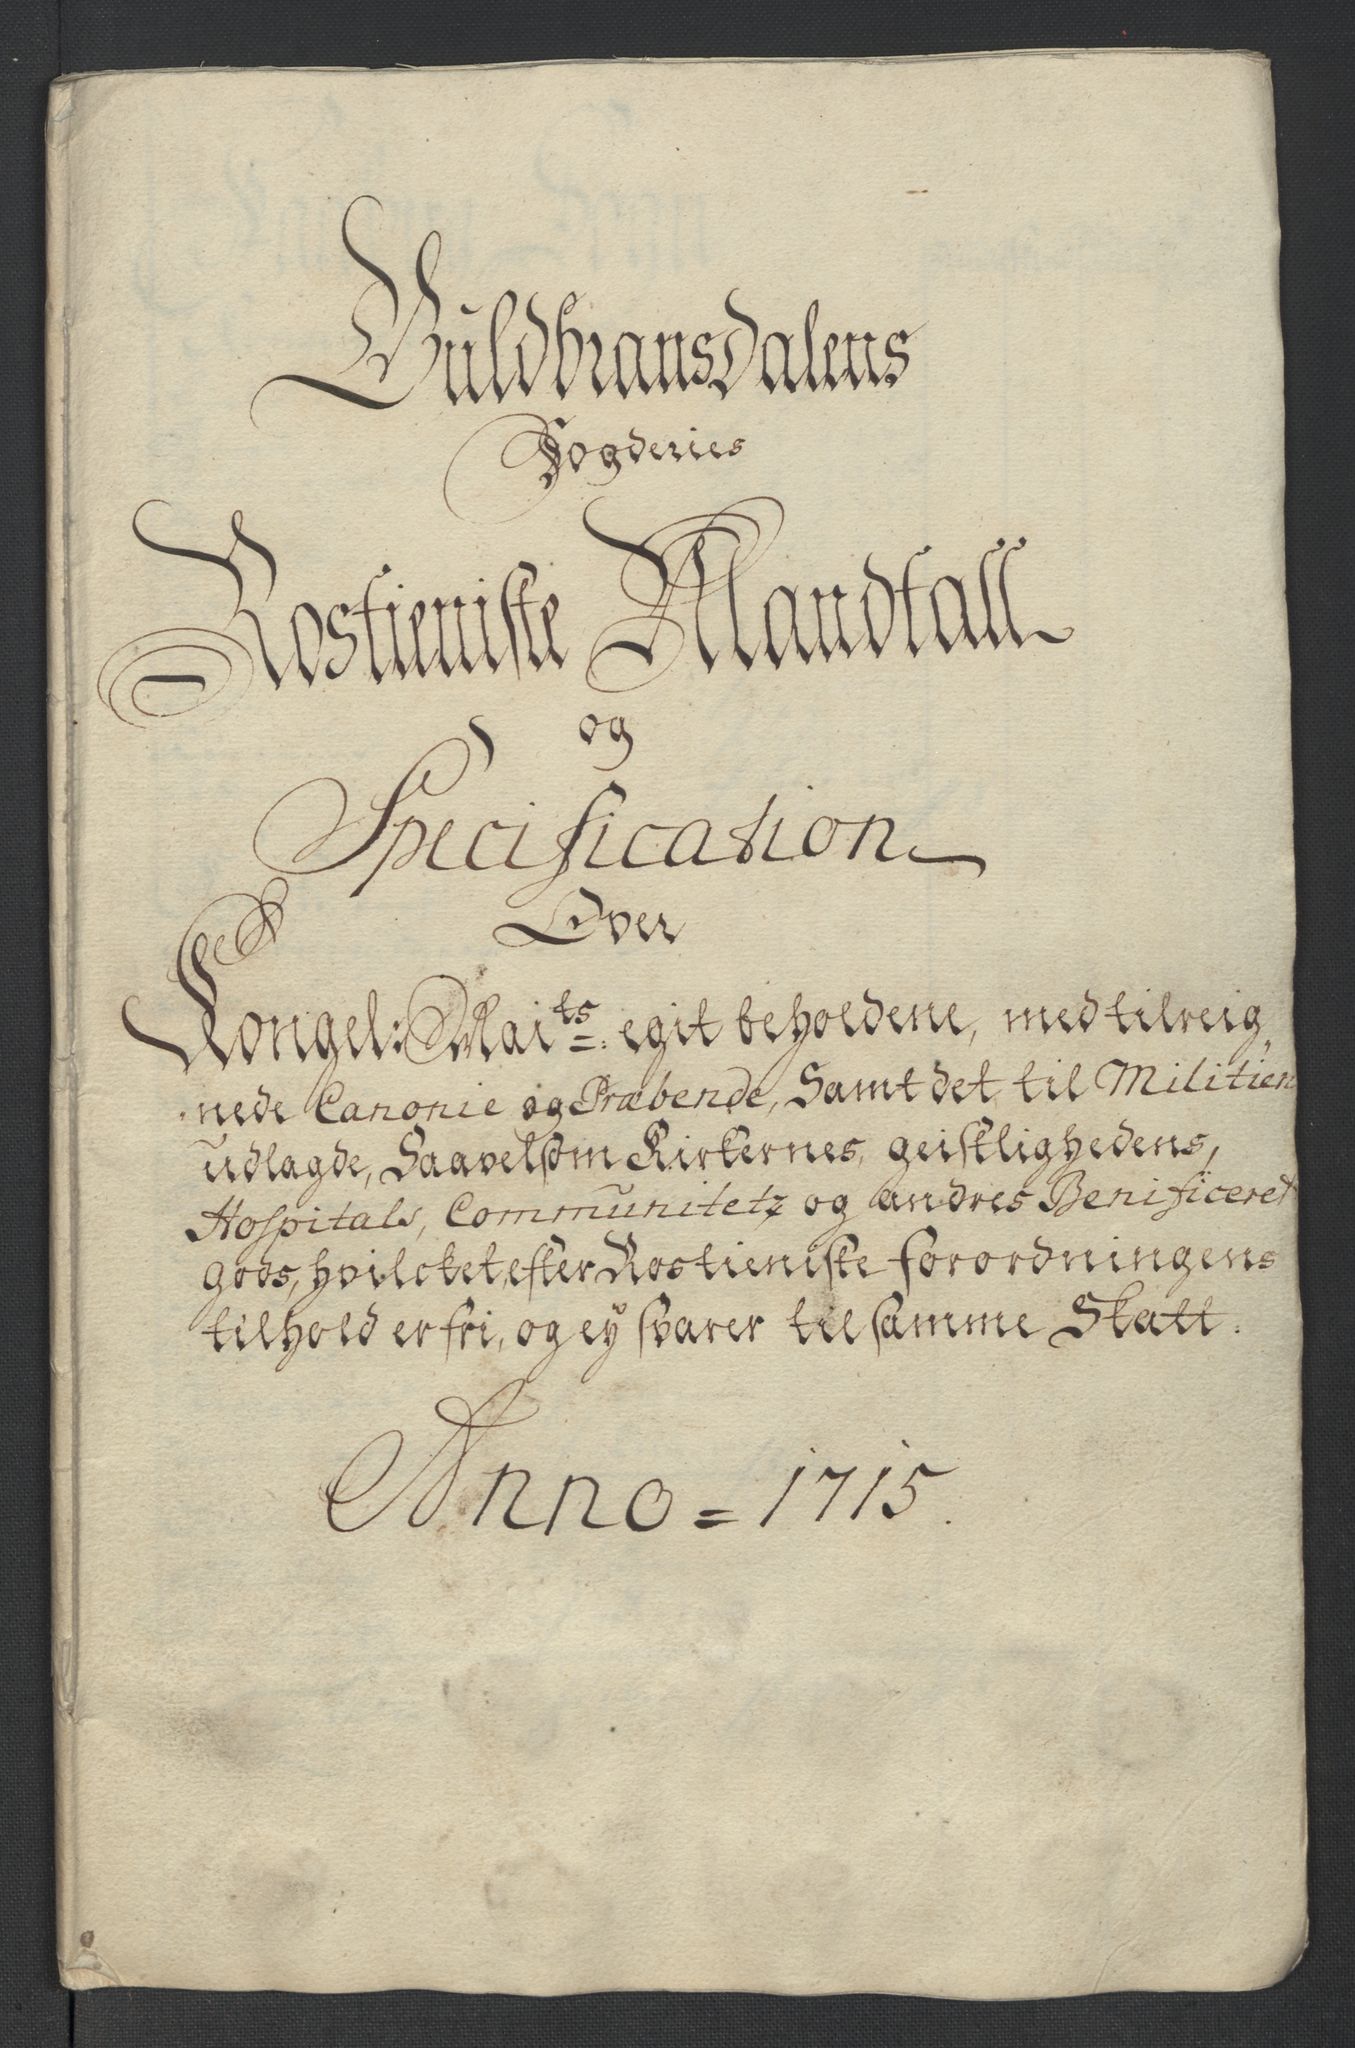 Guldbransdalens
Fogderies
Rostieniste Mandtall
og
Specification
Over
Kongel: Maits: egit beholdene, med tilreig,
nede Canonie og Præbende, Samt det til Militien
udlagde, Saavelsom Kirkernes, geistlighedens,
Hospitals, Communitetz og andres Benificeret
gods, hvilcket, efter Rostieniste forordningens
tilhold er fri, og ey svarer til samme Skatt.
Anno = 1715.